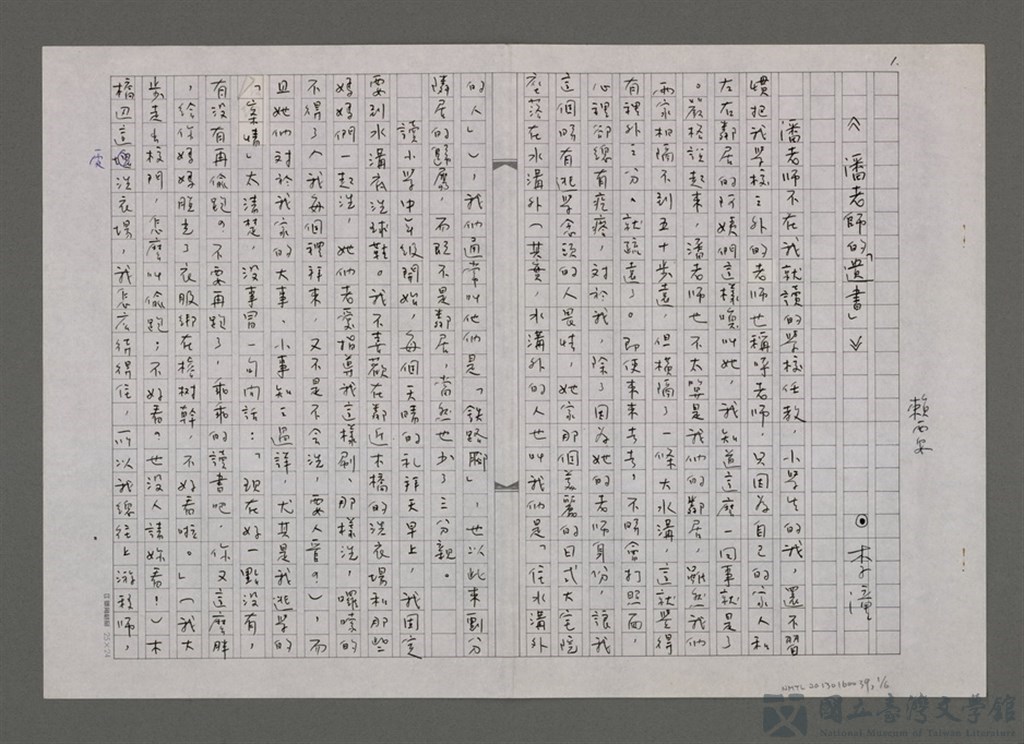 1.
賴西安
《潘老師的「遺書」》 ◉李潼
潘老師不在我就讀的學校任教，小學生的我，還不習
慣把我學校之外的老師也稱呼老師，只因為自己的家人和
左右鄰居的阿姨們這樣喚叫她，我知道這麼一回事就是了
。嚴格說起來，潘老師也不太算是我們的鄰居，雖然我們
兩家相隔不到五十步遠，但橫隔了一條大水溝，這就覺得
有裡外之分。就疏遠了。即使來來去去，不時會打照面，
心裡卻總有疙瘩，對於我，除了因為她的老師身份，讓我
這個時有逃學念頭的人畏怯，她家那個美麗的日式大宅院
座落在水溝外（其實，水溝外的人也叫我們是「住水溝外
的人」），我們通常叫他們是「鐵路腳」，也以此來劃分
隣居的歸屬，而既不是鄰居，當然也少了三分親。
讀小學中年級開始，每個天晴的礼拜天早上，我固定
要到水溝衣洗球鞋。我不喜歡在鄰近木橋的洗衣場和那些
媽媽們一起洗，她們老愛指導我這樣刷、那樣洗，囉嗦的
不得了（我每個禮拜來，又不是不會洗，要人管？），而
且她們對於我家的大事、小事知之過詳，尤其是我逃學的
「案情」太清楚，沒事冒一句問話：「現在好一點沒有，
有沒有再偷跑？不要再跑了，乖乖的讀書吧，你又這麼胖
，給你媽媽脫光了衣服綁在榕樹幹，不好看啦。」（我大
步走出校門，怎麼叫偷跑；不好看？也沒人請妳看！）木
橋四這塊洗衣場，我怎麼待得住，所以我總往上游移師，
處
NMTL 20130160039, 1/6
25×24
國立臺灣文學館
National Museum of Taiwan Literature